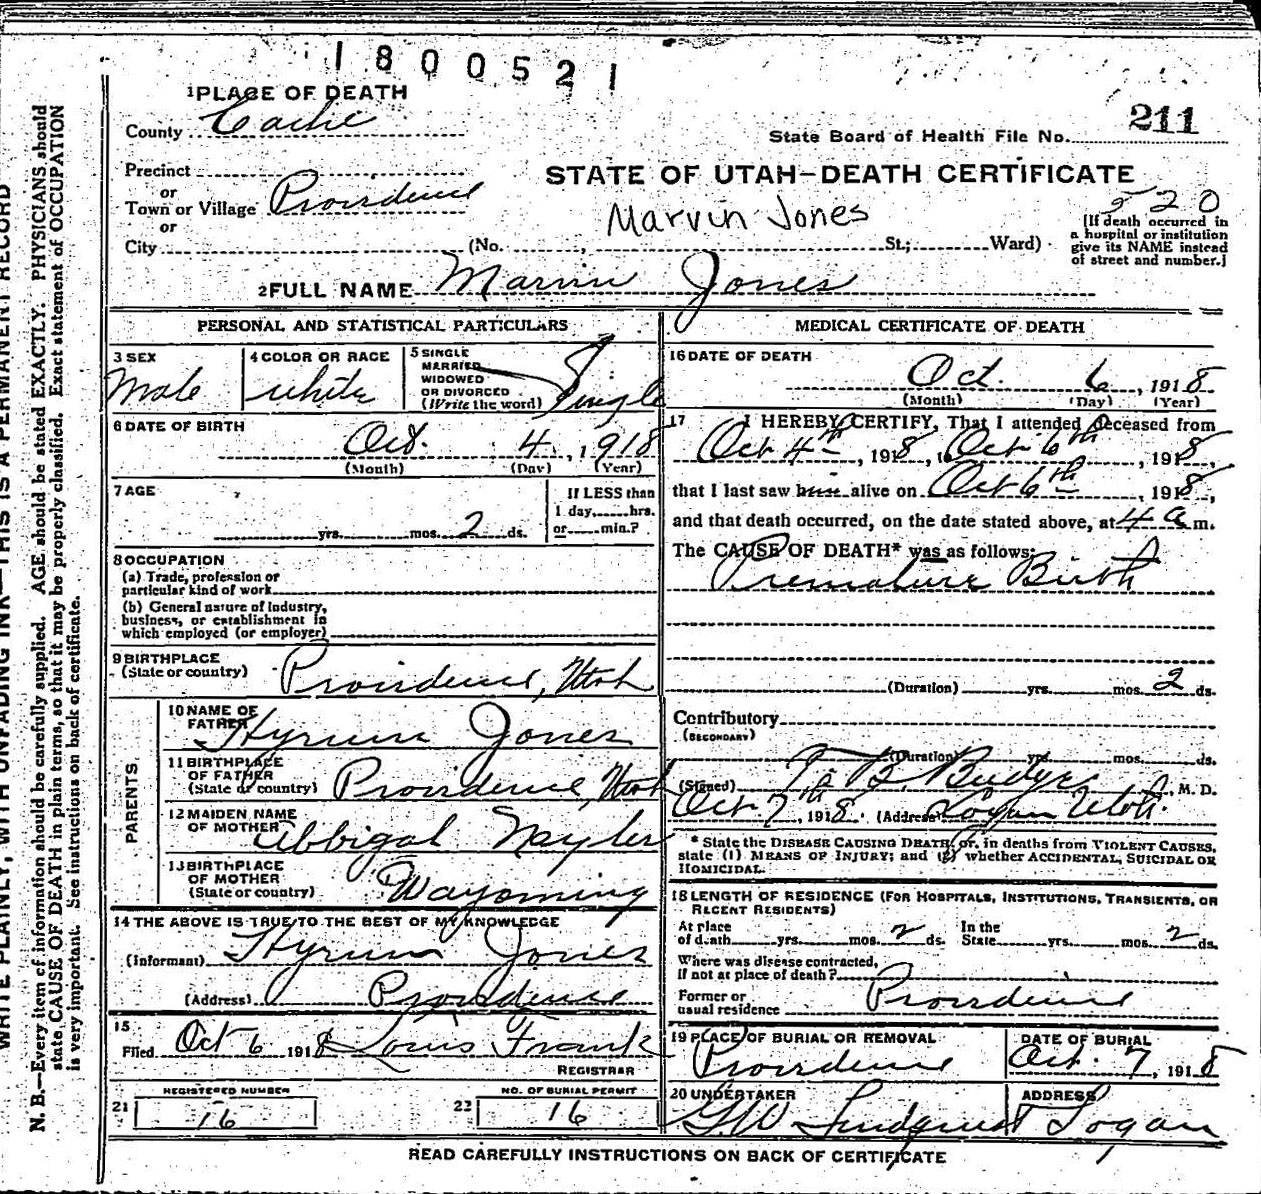 1800521
1 PLACE OF DEATH
County Cache
211
State Board of Health File No.
Precinct
or
Town or Village Providence
or
City (No. St.; Ward)
STATE OF UTAH—DEATH CERTIFICATE
Marvin Jones
520
[If death occurred in
a hospital or institution
give its NAME instead
of street and number.]
2 FULL NAME Marvin Jones
PERSONAL AND STATISTICAL PARTICULARS
3 SEX
Male
4 COLOR OR RACE
white
5 SINGLE
MARRIED
WIDOWED
OR DIVORCED
(Write the word) Single
6 DATE OF BIRTH
Oct. 4, 1918
(Month) (Day) (Year)
7 AGE
If LESS than
1 day, hrs.
or min.?
yrs. mos. 2 ds.
8 OCCUPATION
(a) Trade, profession or
particular kind of work
(b) General nature of Industry,
business, or establishment in
which employed (or employer)
9 BIRTHPLACE
(State or country) Providence, Utah
PARENTS
10 NAME OF
FATHER Hyrum Jones
11 BIRTHPLACE
OF FATHER
(State or country) Providence, Utah
12 MAIDEN NAME
OF MOTHER Abbigal Nayler
13 BIRTHPLACE
OF MOTHER
(State or country) Wayoming
14 THE ABOVE IS TRUE TO THE BEST OF MY KNOWLEDGE
(Informant) Hyrum Jones
(Address) Providence
15
Filed Oct 6 1918 Louis Frank
REGISTRAR
REGISTERED NUMBER
21 16
NO. OF BURIAL PERMIT
22 16
MEDICAL CERTIFICATE OF DEATH
16 DATE OF DEATH
Oct. 6, 1918
(Month) (Day) (Year)
17 I HEREBY CERTIFY, That I attended deceased from
Oct 4th, 1918, to Oct 6th, 1918,
that I last saw him alive on Oct 6th, 1918,
and that death occurred, on the date stated above, at 4 a m.
The CAUSE OF DEATH* was as follows:
Premature Birth
(Duration) yrs. mos. 2 ds.
Contributory
(SECONDARY)
(Duration) yrs. mos. ds.
(Signed) B. Budge, M. D.
Oct 7th, 1918. (Address) Logan Utah.
* State the DISEASE CAUSING DEATH, or, in deaths from VIOLENT CAUSES,
state (1) MEANS OF INJURY; and (2) whether ACCIDENTAL, SUICIDAL OR
HOMICIDAL.
18 LENGTH OF RESIDENCE (FOR HOSPITALS, INSTITUTIONS, TRANSIENTS, OR
RECENT RESIDENTS)
At place
of death yrs. mos. 2 ds.
In the
State yrs. mos. 2 ds.
Where was disease contracted,
if not at place of death?
Former or
usual residence Providence
19 PLACE OF BURIAL OR REMOVAL
Providence
DATE OF BURIAL
Oct. 7, 1918
20 UNDERTAKER
G W Lindquist
ADDRESS
Logan
READ CAREFULLY INSTRUCTIONS ON BACK OF CERTIFICATE
WRITE PLAINLY, WITH UNFADING INK—THIS IS A PERMANENT RECORD
N. B.—Every item of information should be carefully supplied. AGE should be stated EXACTLY. PHYSICIANS should
state CAUSE OF DEATH in plain terms, so that it may be properly classified. Exact statement of OCCUPATION
is very important. See instructions on back of certificate.